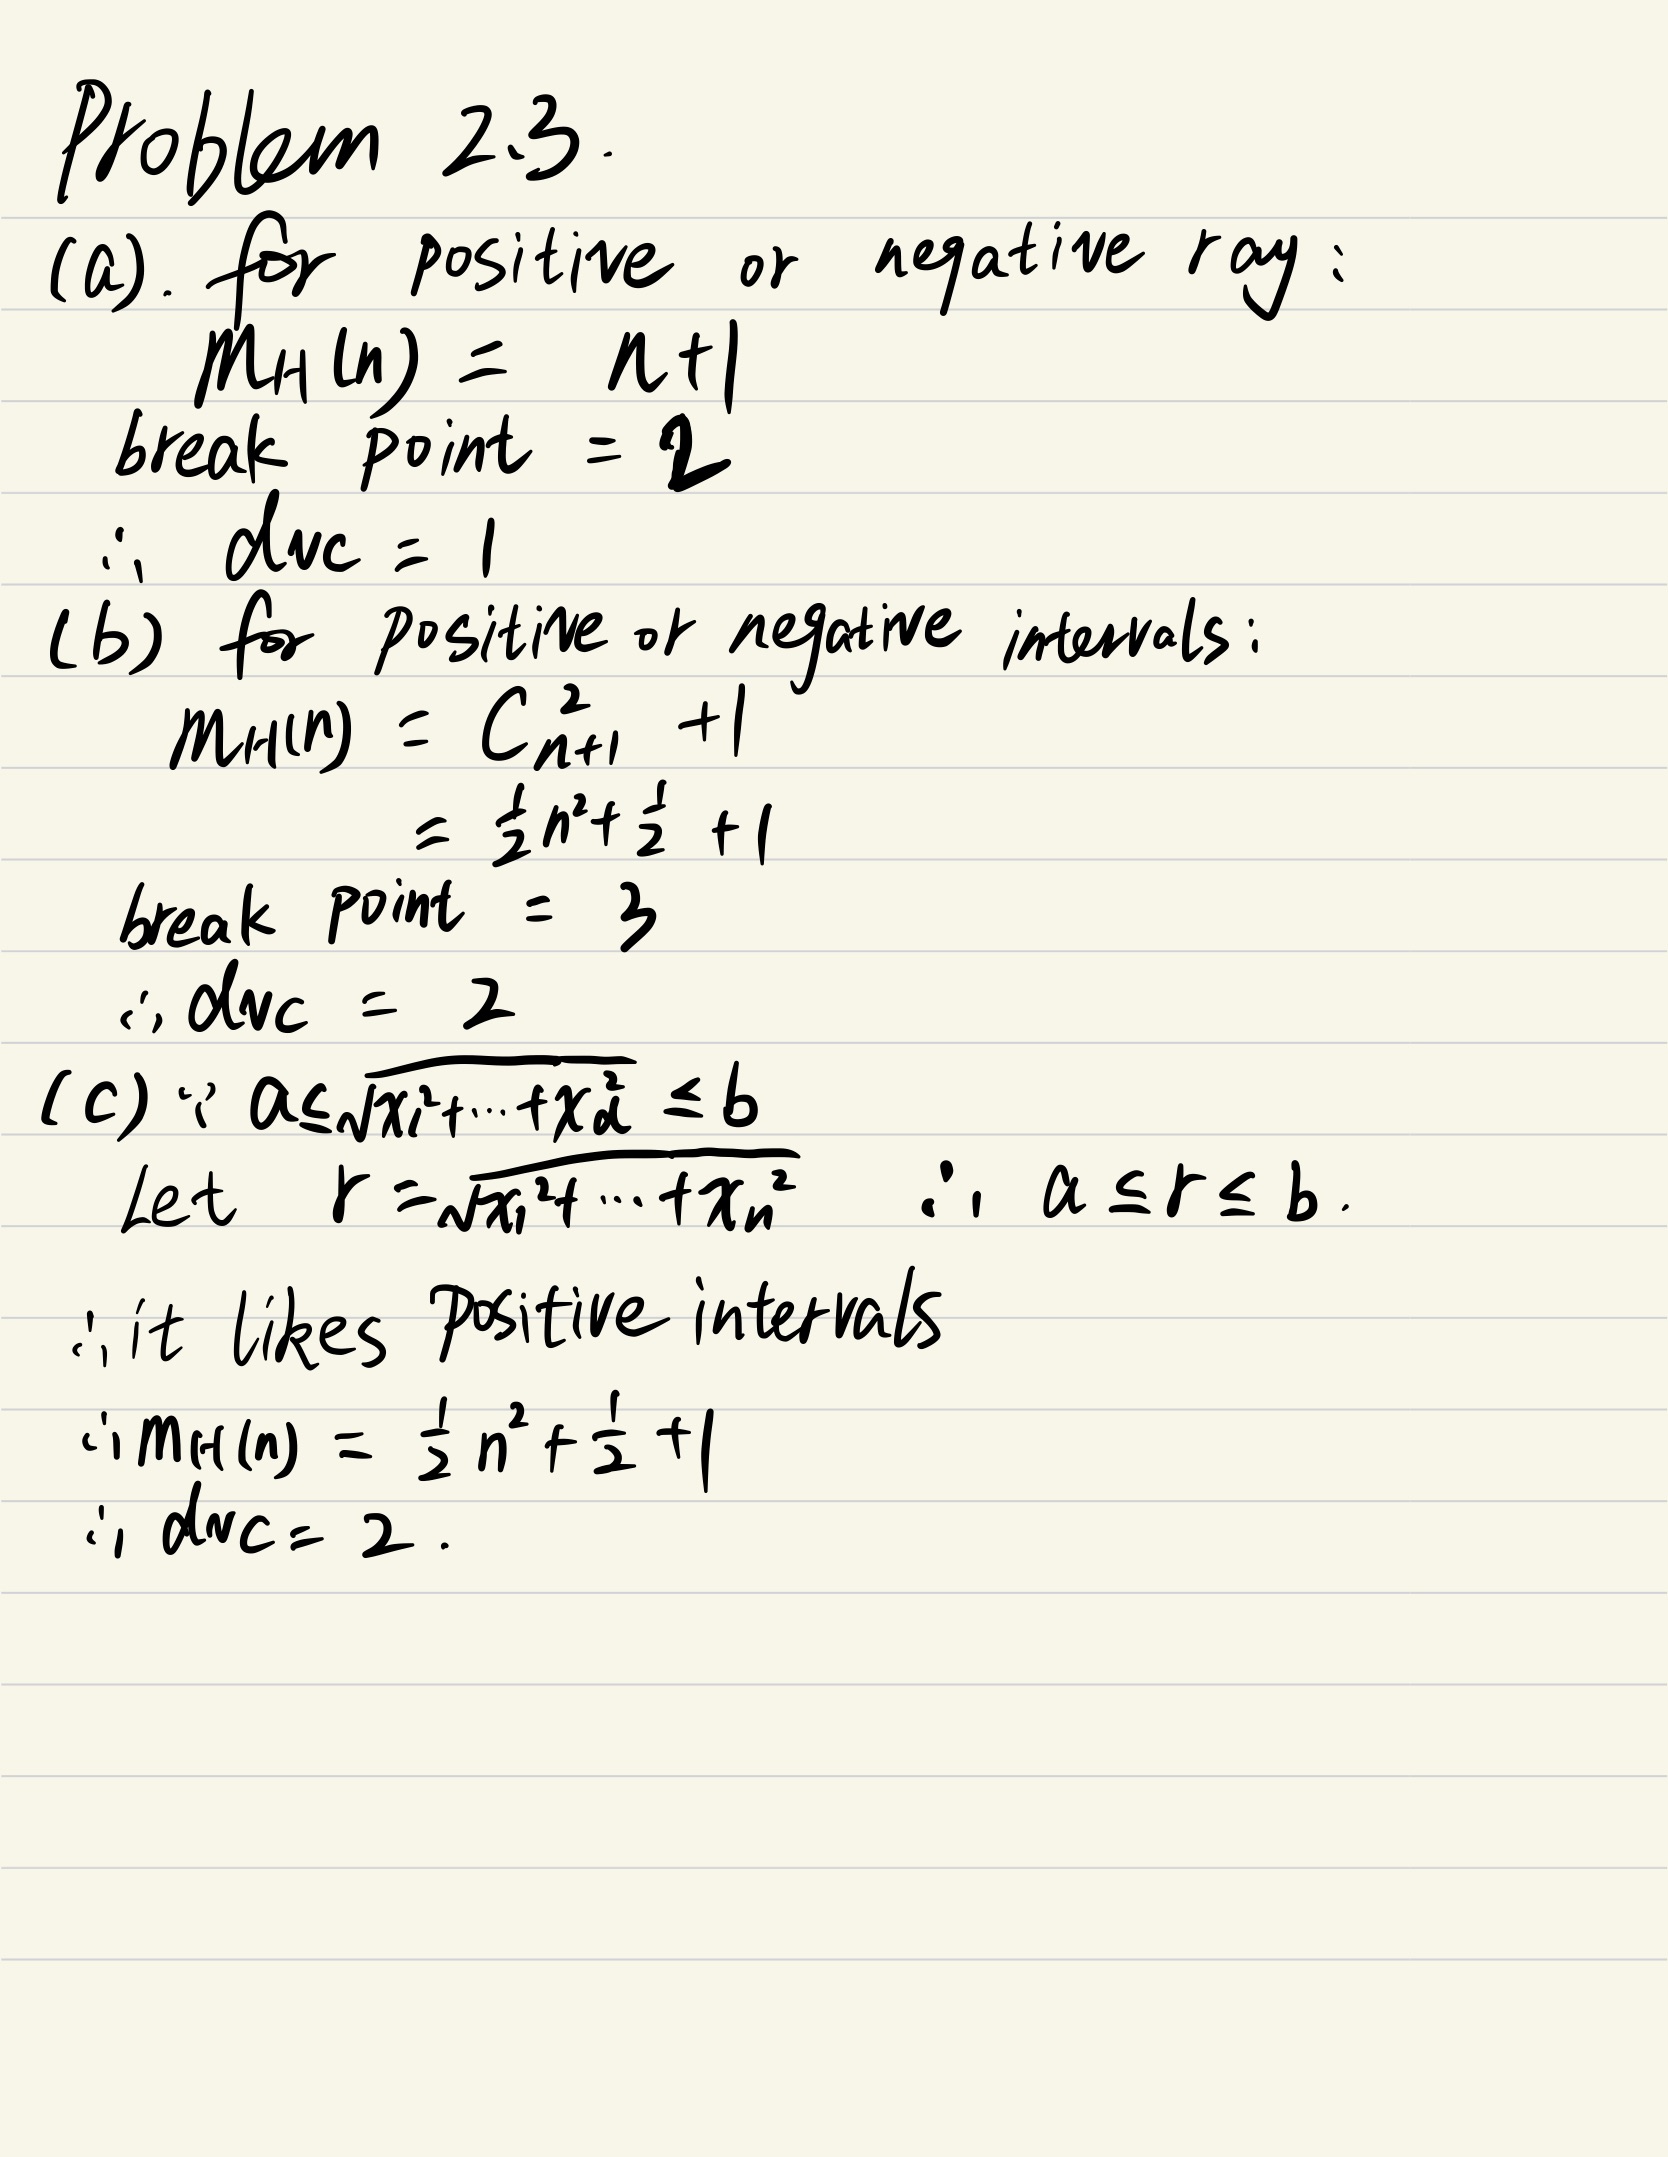 Problem 2.3.
(a). for positive or negative ray:
mH(n) = n+1
break point = 2
∴ dvc = 1
(b) for positive or negative intervals:
mH(n) = C²ₙ₊₁ +1
= ½n²+½ +1
break point = 3
∴ dvc = 2
(c) ∵ a≤√(x₁²+...+x_d²) ≤ b
Let r = √(x₁²+...+xₙ²) ∴ a ≤ r ≤ b.
∴ it likes positive intervals
∴ mH(n) = ½ n² + ½ +1
∴ dvc = 2.